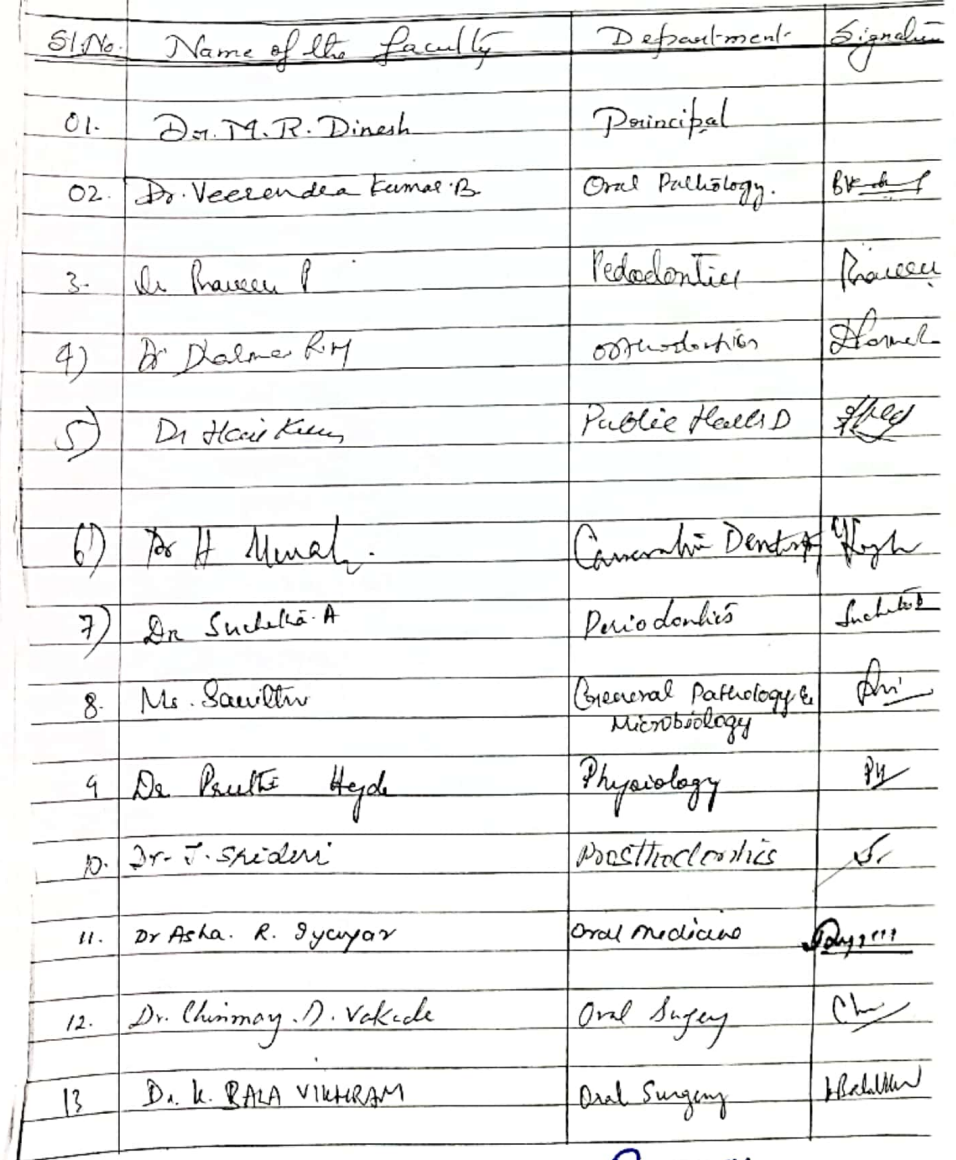 Sl.No. Name of the faculty Department Signature
01. Dr. M.R. Dinesh Principal
02. Dr. Veerendra Kumar.B. Oral Pathology.
3. Dr Praveen P Pedodontics Praveen
4) Dr R.M orthodontics
5) Dr Public Health D
6) Dr H Dentistry
7) Dr Sucheta.A Periodontics Sucheta
8. Ms. Savithri General Pathology &
Microbiology
9 Dr Hegde Physiology PH
10. Dr. J. Sridevi Prosthodontics
11. Dr Asha. R. Iyengar Oral medicine
12. Dr. Chinmay.D. Vakade Oral Sugery Ch
13 Dr. K. BALA VIKHRAM Oral Surgery